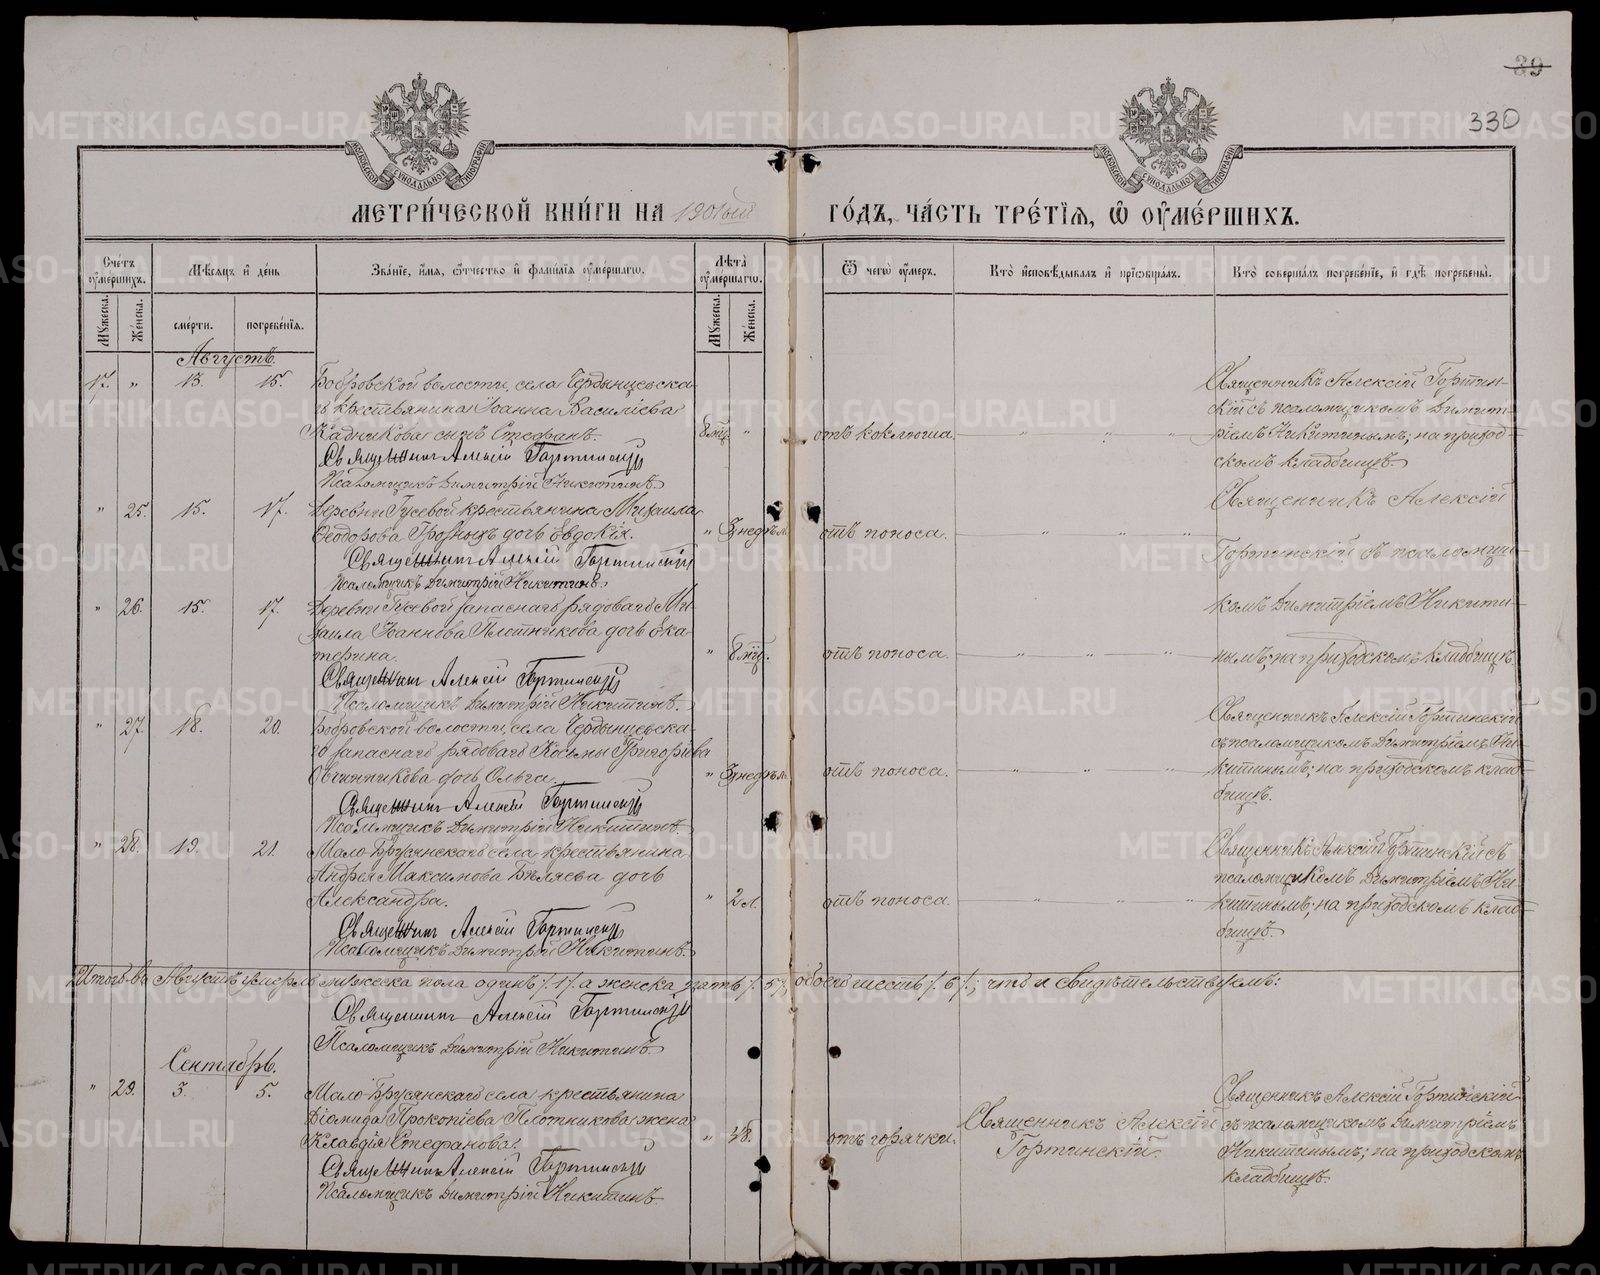 89
330
МОСКОВСКОЙ СУНОДАЛЬНОЙ ТИПОГРАФИИ
МОСКОВСКОЙ СУНОДАЛЬНОЙ ТИПОГРАФИИ
МЕТРИ́ЧЕСКОЙ КНИ́ГИ НА 1901ый
ГО́ДЪ, ЧА́СТЬ ТРЕ́ТЇѦ, Ѡ ОУ҆МЕ́РШИХЪ.
Сче́тъ оу҆ме́ршихъ.
Мꙋжеска.
Же́нска.
Мѣ́сяцъ и҆ де́нь
сме́рти.
погребе́нїѧ.
Зва́нїе, и҆мѧ, ѻ҆́тчество и҆ фами́лїѧ оу҆ме́ршагѡ.
Лѣ́та̀ оу҆ме́ршагѡ.
Мꙋжеска.
Же́нска.
Ѿ чегѡ̀ оу҆́меръ.
Кто̀ и҆сповѣ́дывалъ и҆ прїѡбща́лъ.
Кто̀ соверша́лъ погребе́нїе, и҆ гдѣ̀ погребены̀.
Августъ.
17. " 13. 15. Бобровской волости, села Чердынцевска-
го крестьянина Іоанна Василіева
Кадникова сынъ Стефанъ. 8 мѣц. " отъ коклюша.
Священникъ Алексій Гортинскій
Псаломщикъ Димитрій Никитинъ.
Священникъ Алексій Гортин-
скій съ псаломщикомъ Димит-
ріемъ Никитинымъ; на приход-
скомъ кладбищѣ.
" 25. 15. 17. Деревни Гусевой крестьянина Михаила
Ѳеодорова Грозныхъ дочь Евдокія. " 3 недѣл. отъ поноса.
Священникъ Алексій Гортинскій
Псаломщикъ Димитрій Никитинъ.
" 26. 15. 17. Деревни Гусевой запаснаго рядоваго Ми-
хаила Іоаннова Плотникова дочь Ека-
терина. " 8 мѣц. отъ поноса.
Священникъ Алексій Гортинскій
Псаломщикъ Димитрій Никитинъ.
Священникъ Алексій
Гортинскій съ псаломщи-
комъ Димитріемъ Никити-
нымъ; на приходскомъ кладбищѣ.
" 27. 18. 20. Бобровской волости, села Чердынцевска-
го запаснаго рядоваго Космы Григоріева
Овчинникова дочь Ольга. " 3 недѣл. отъ поноса.
Священникъ Алексій Гортинскій
Псаломщикъ Димитрій Никитинъ.
Священникъ Алексій Гортинскій
съ псаломщикомъ Димитріемъ Ни-
китинымъ; на приходскомъ клад-
бищѣ.
" 28. 19. 21. Мало-Брусянскаго села крестьянина
Андрея Максимова Бѣляева дочь
Александра. " 2 л. отъ поноса.
Священникъ Алексій Гортинскій
Псаломщикъ Димитрій Никитинъ.
Священникъ Алексій Гортинскій съ
псаломщикомъ Димитріемъ Ни-
китинымъ; на приходскомъ клад-
бищѣ.
Итого въ Августѣ умерло мужеска пола одинъ /.1/. а женска пять /.5/. обоего шесть /.6/.; что и свидѣтельствуемъ:
Священникъ Алексій Гортинскій
Псаломщикъ Димитрій Никитинъ.
Сентябрь.
" 29. 3. 5. Мало-Брусянскаго села крестьянина
Діомида Прокопіева Плотникова жена
Клавдія Стефанова. " 48. отъ горячки.
Священникъ Алексій Гортинскій
Псаломщикъ Димитрій Никитинъ
Священникъ Алексій
Гортинскій.
Священникъ Алексій Гортинскій
съ псаломщикомъ Димитріемъ
Никитинымъ; на приходскомъ
кладбищѣ.
METRIKI.GASO-URAL.RU